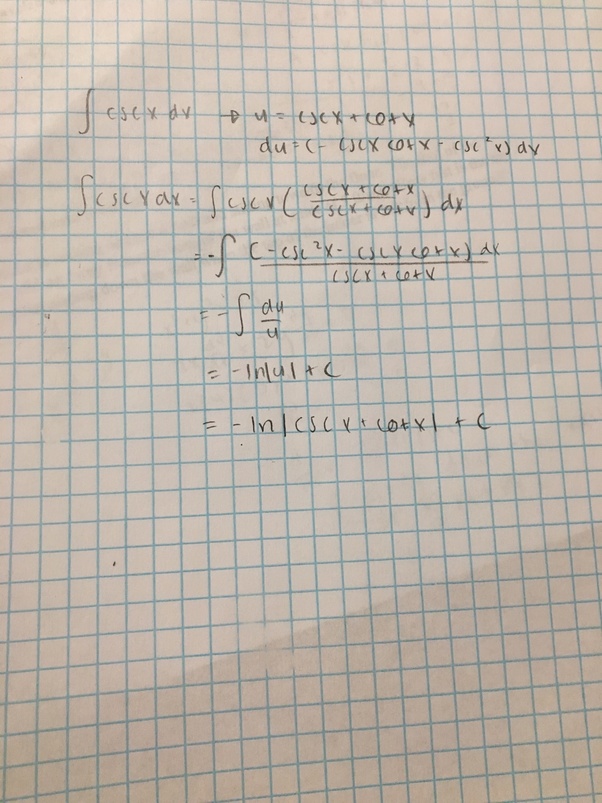 ∫ csc x dx → u = csc x + cot x
du = (- csc x cot x - csc²x) dx
∫ csc x dx = ∫ csc x ( (csc x + cot x)/(csc x + cot x) ) dx
= -∫ (-csc²x - csc x cot x) dx / (csc x + cot x)
= -∫ du/u
= -ln|u| + C
= -ln|csc x + cot x| + C